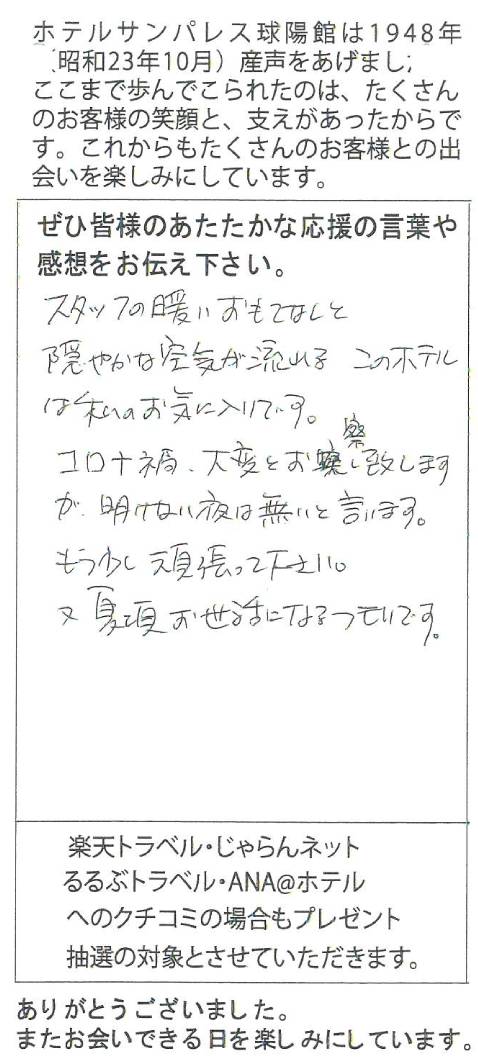 ホテルサンパレス球陽館は1948年
（昭和23年10月）産声をあげまし
ここまで歩んでこられたのは、たくさん
のお客様の笑顔と、支えがあったからで
す。これからもたくさんのお客様との出
会いを楽しみにしています。
ぜひ皆様のあたたかな応援の言葉や
感想をお伝え下さい。
スタッフの暖いおもてなしと
隠やかな空気が流れる このホテル
は私のお気に入りです。
コロナ禍、大変とお察し致します
が、明けない夜は無いと言います。
もう少し頑張って下さい。
又夏頃お世話になるつもりです。
楽天トラベル・じゃらんネット
るるぶトラベル・ANA@ホテル
へのクチコミの場合もプレゼント
抽選の対象とさせていただきます。
ありがとうございました。
またお会いできる日を楽しみにしています。